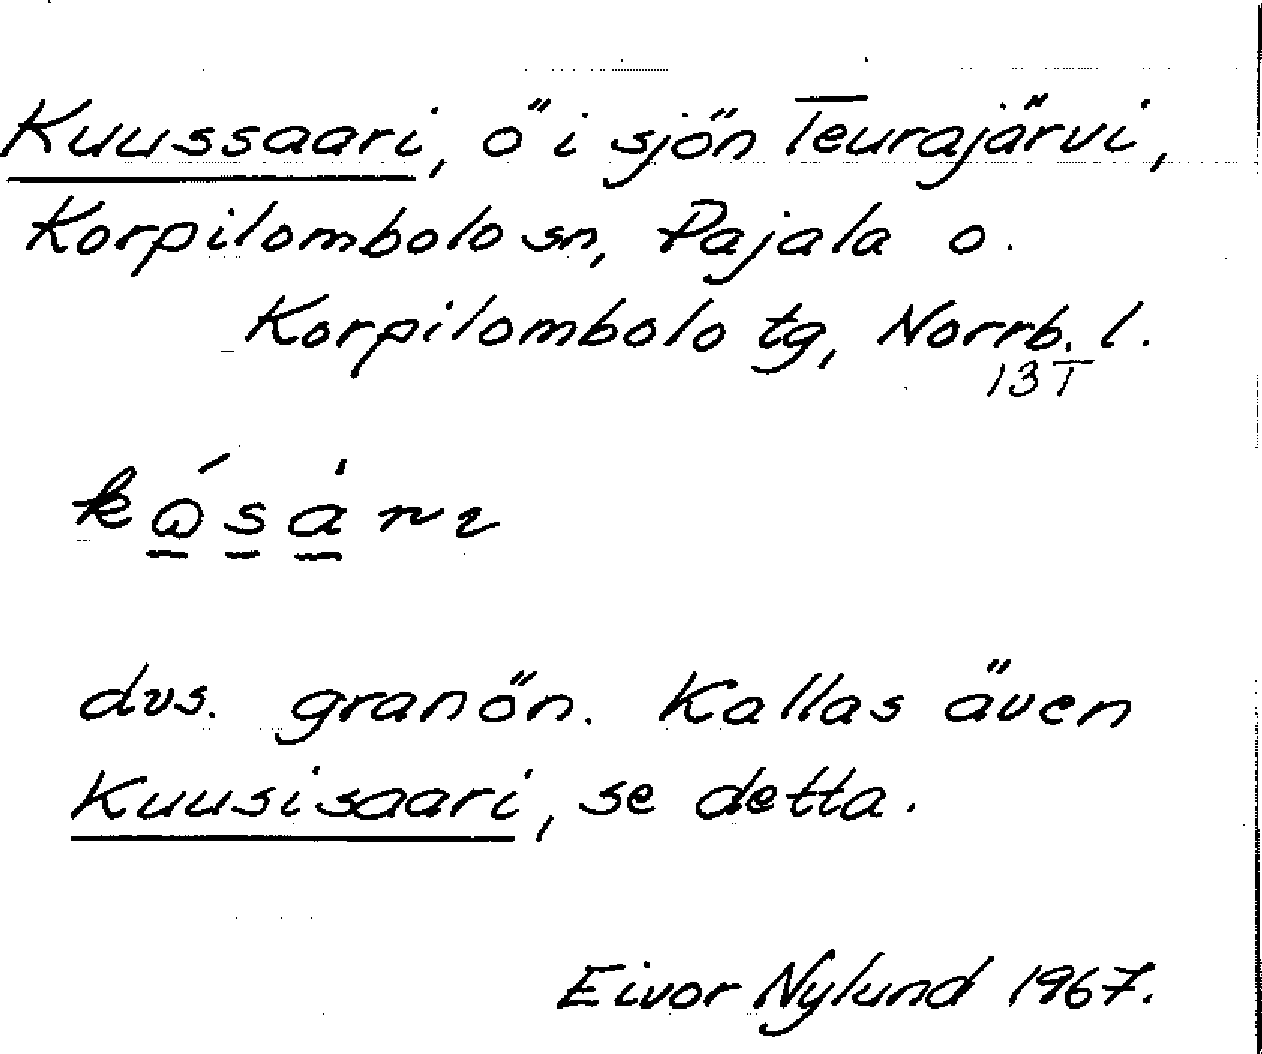 Kuussaari, ö i sjön Teurajärvi,
Korpilombolo sn, Pajala o.
Korpilombolo tg, Norrb. l.
13 I
dvs. granön. Kallas även
Kuusisaari, se detta.
Eivor Nylund 1967.